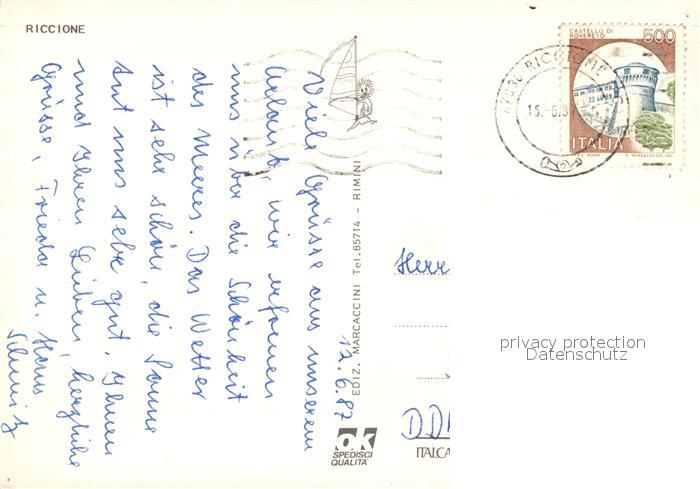 RICCIONE
12.6.87
Viele Grüsse aus unserem
Urlaub, wir erfreuen
uns über die Schönheit
des Meeres. Das Wetter
ist sehr schön, die Sonne
tut uns sehr gut. Ihnen
und Ihren Lieben, herzliche
Grüsse, Frieda u. Hans
Schmitz
EDIZ. MARCACCINI Tel.85714 - RIMINI
ok
SPEDISCI
QUALITA'
CASTELLO DI
ROVERETO
500
ITALIA
RICCIONE
15.-6.8
Herr
DD
ITALCA
privacy protection
Datenschutz